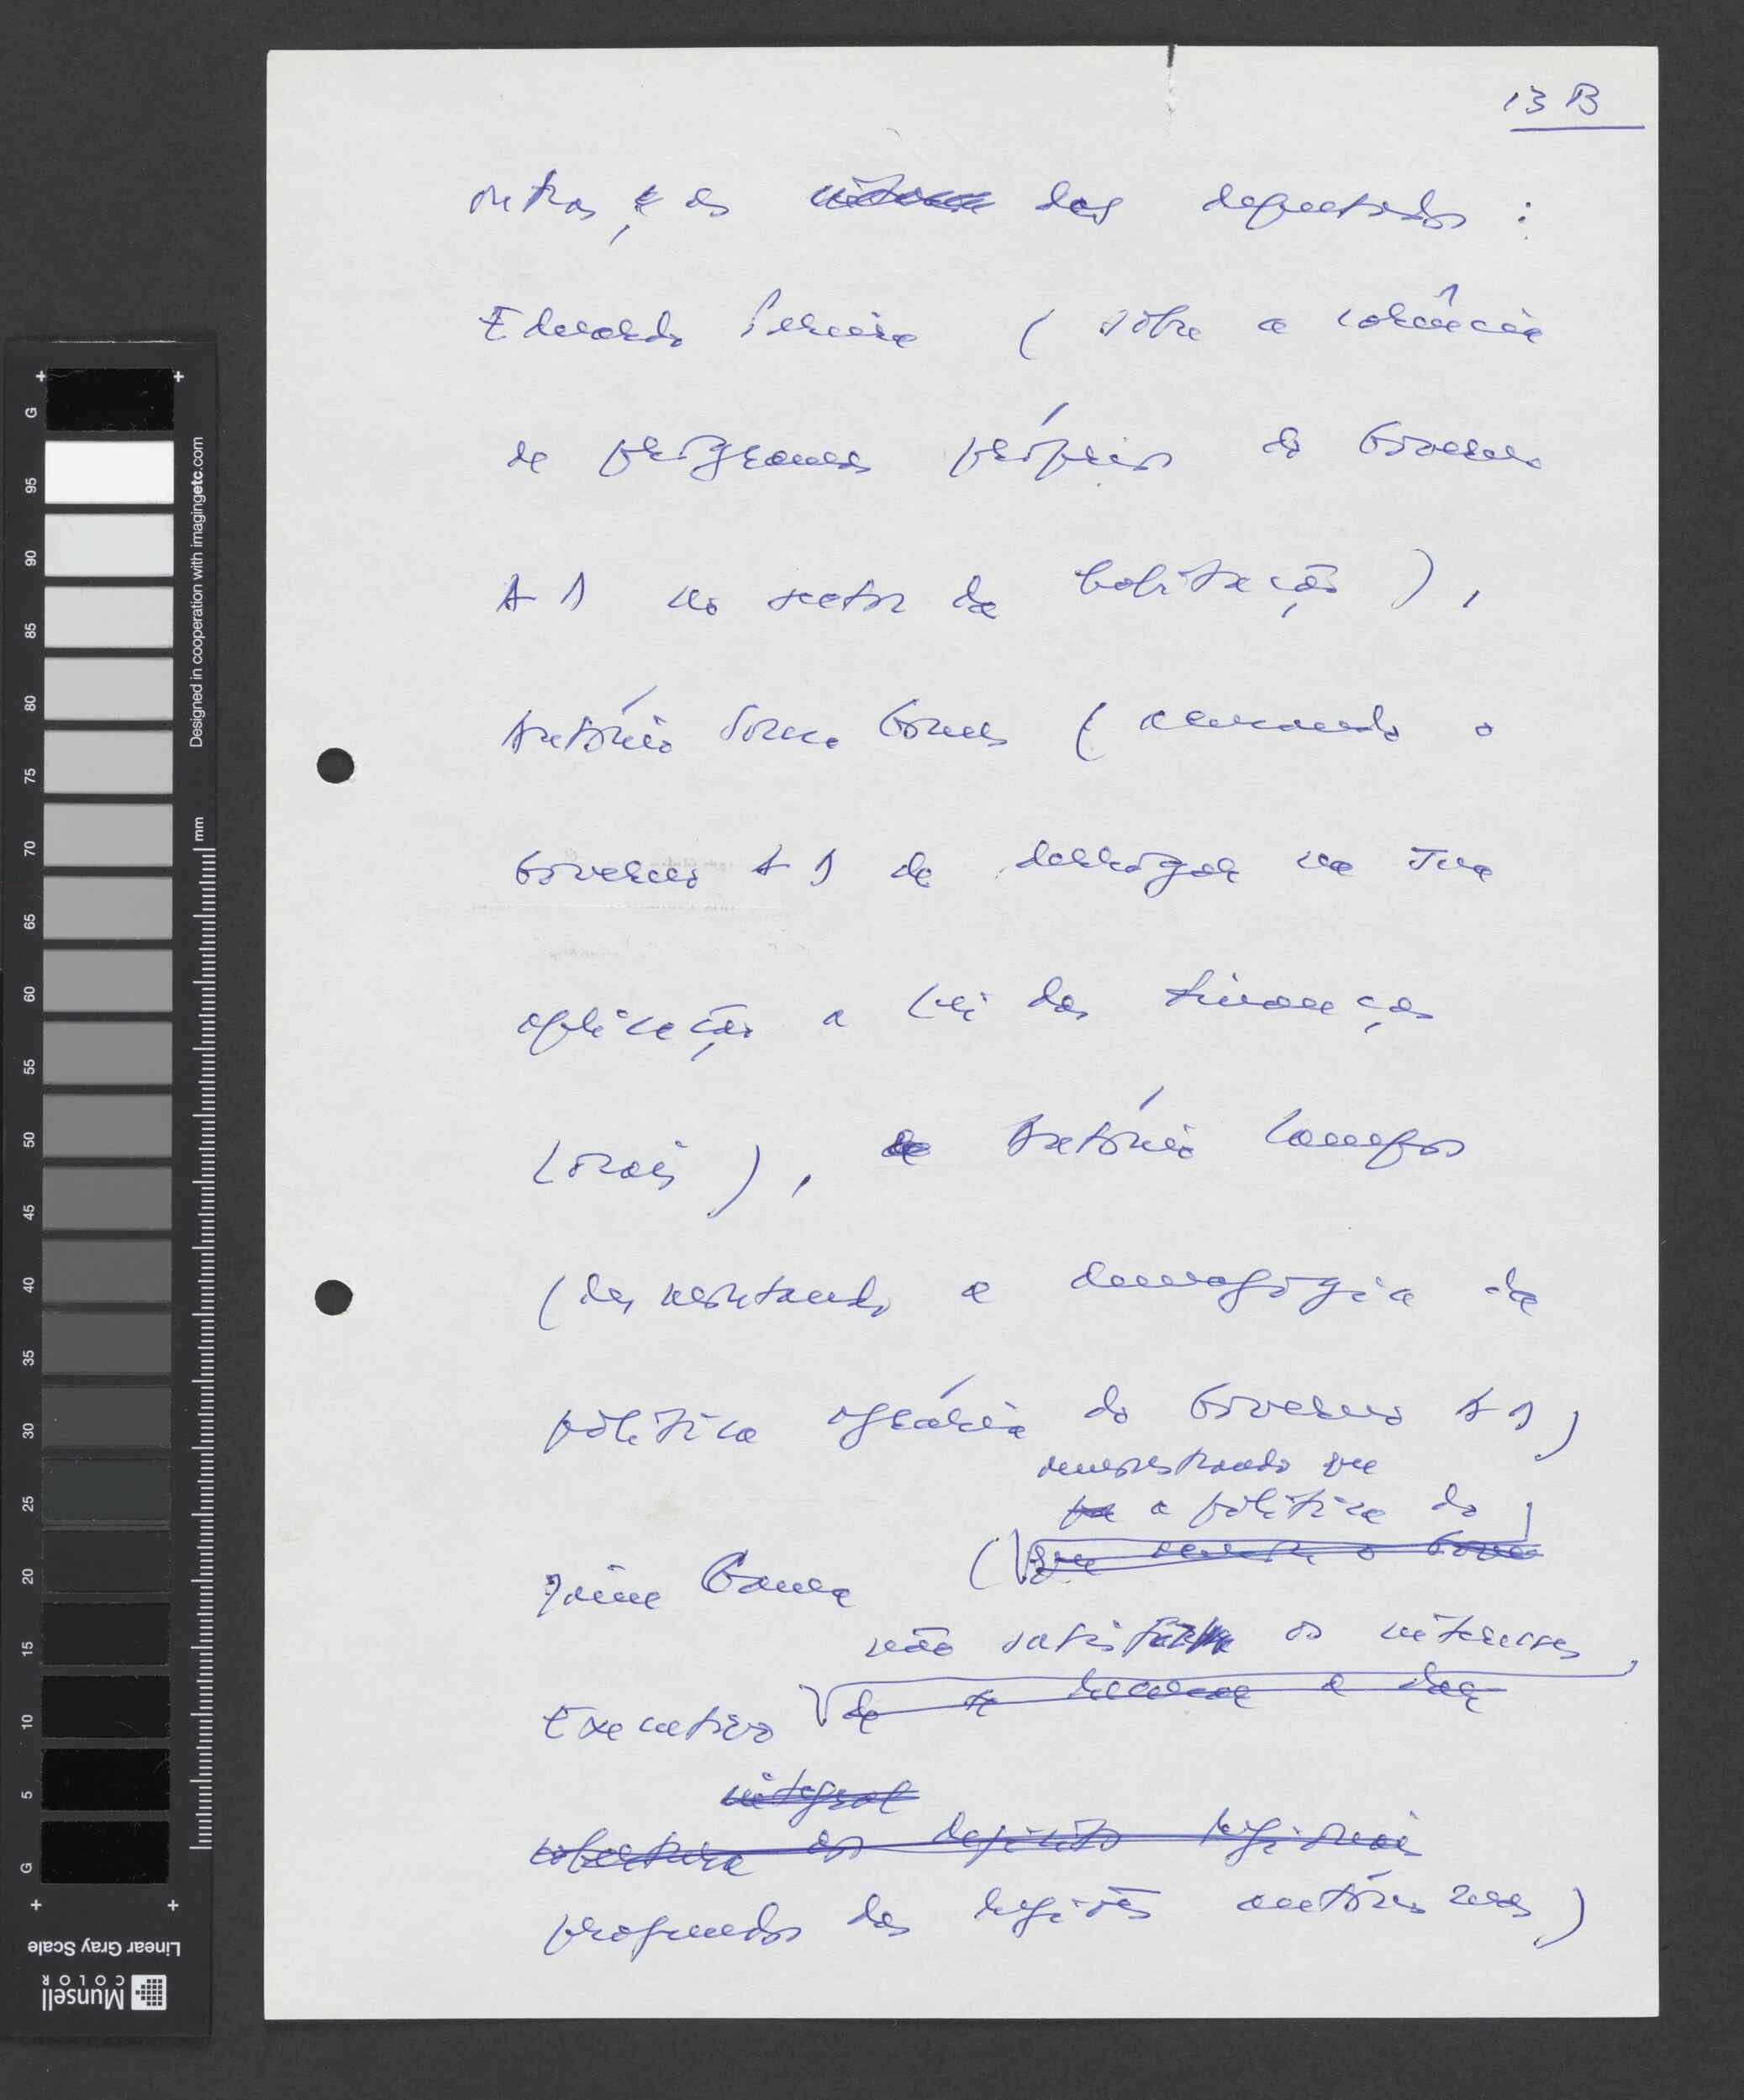 13 B
outros, e os das deputados :
Eduardo Pereira ( sôbre a carência
de programas próprios do Governo
AD no sector da habitação ) ,
António Sousa Gomes ( acusando o
Governo AD de derrogar na sua
aplicação a Lei das Finanças
Locais ) , António Campos
( desmontando a demagógia da
política agrária do Governo AD )
demonstrando que
a política do
Jaime Gama (
não satisfaz os interesses
Executivo de a
integral
cobertura os deficits regionais
profundos das regiões autónomas )
G 95 90 85 80 75 70 65 60 55 50 45 40 35 30 25 20 15 10 5 G
mm
Designed in cooperation with imagingetc.com
Linear Gray Scale
Munsell
COLOR